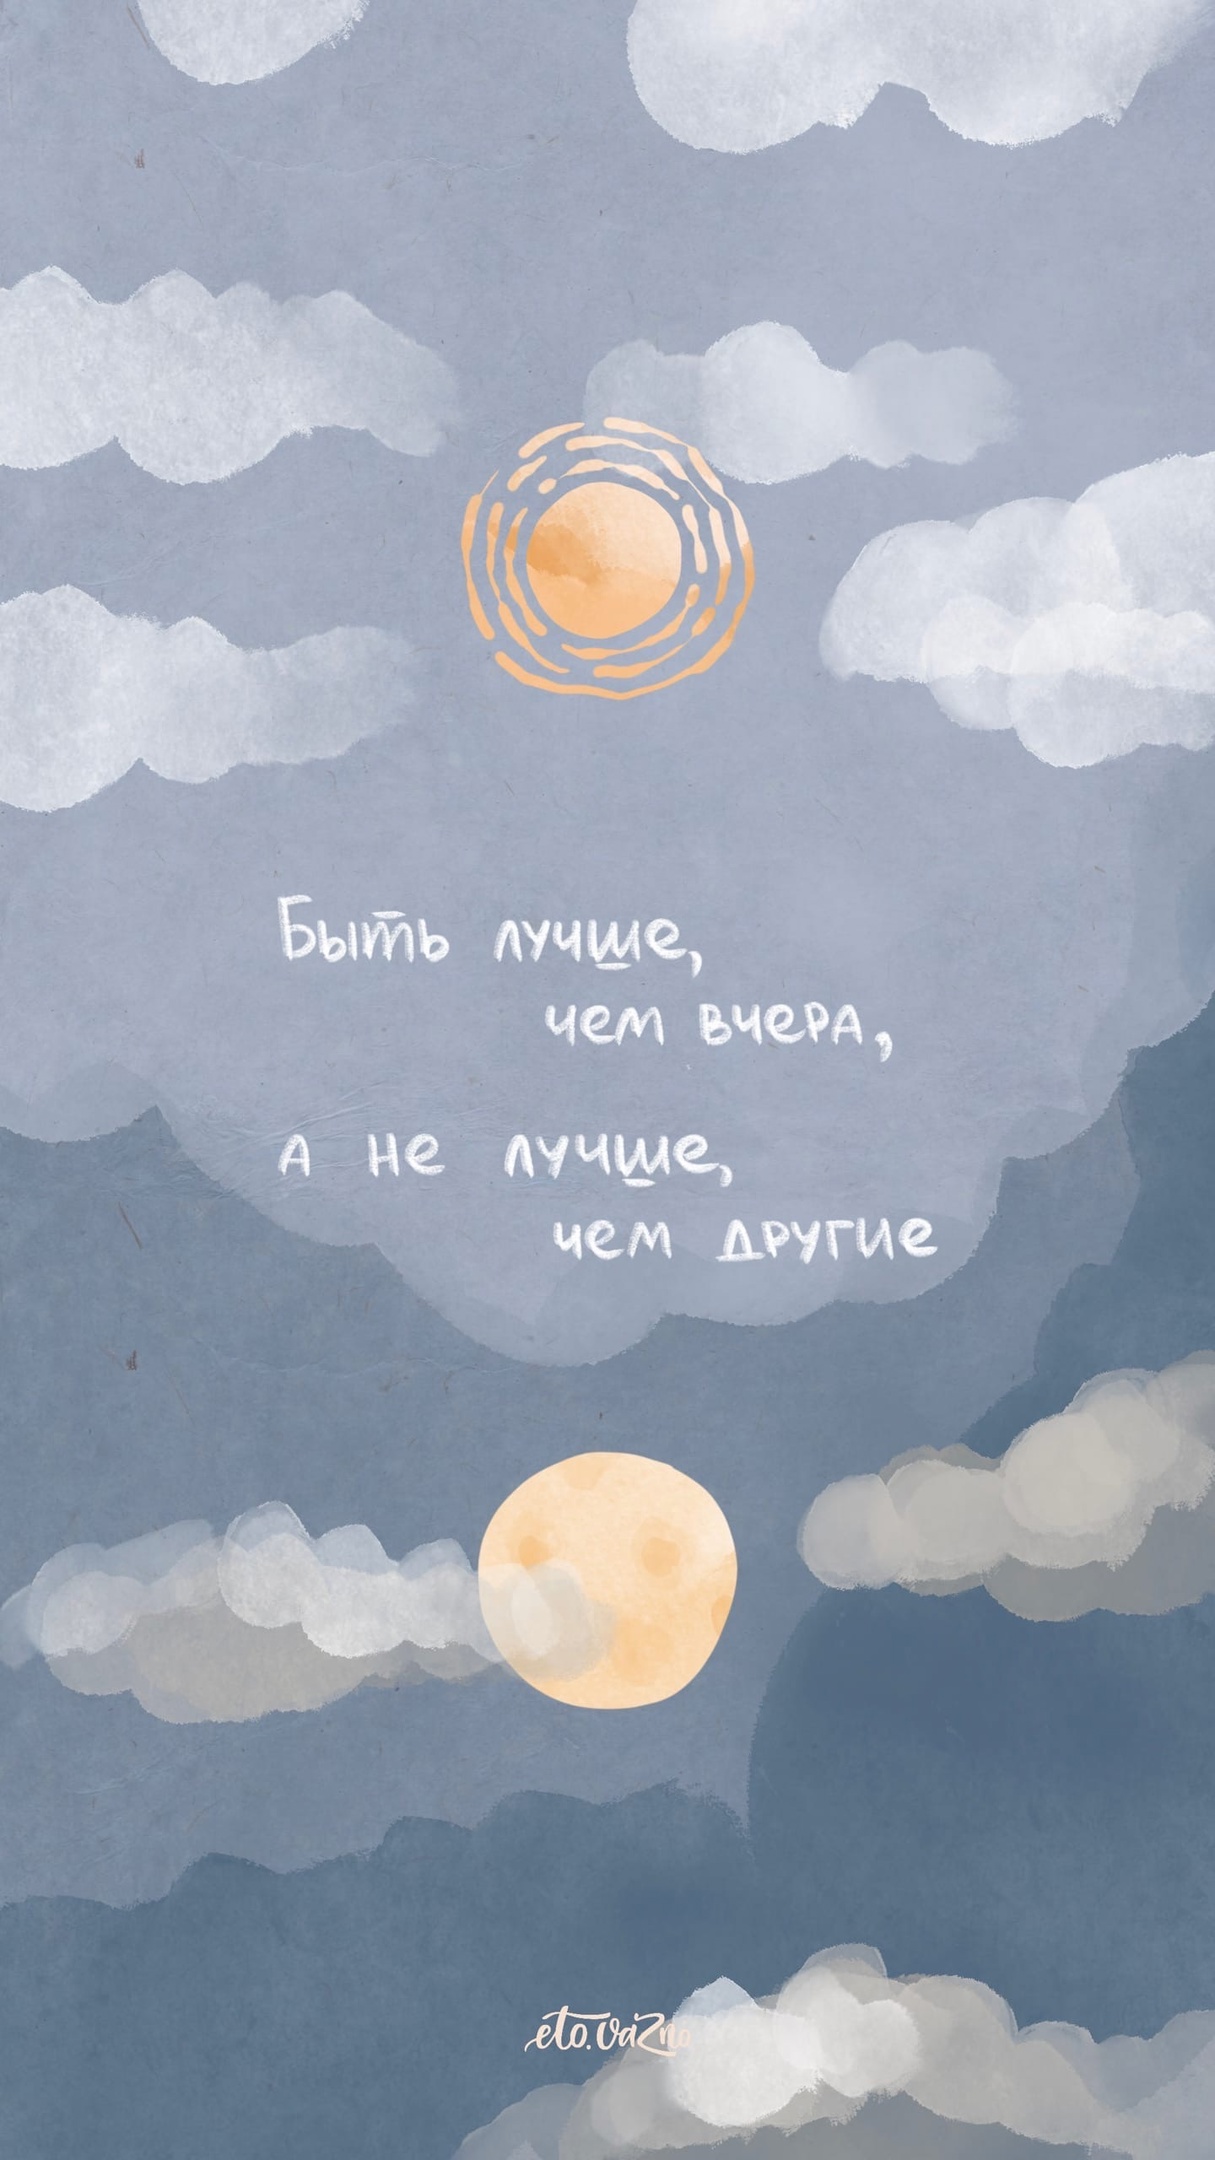 Быть лучше,
чем вчера,
а не лучше,
чем другие
eto.vazno